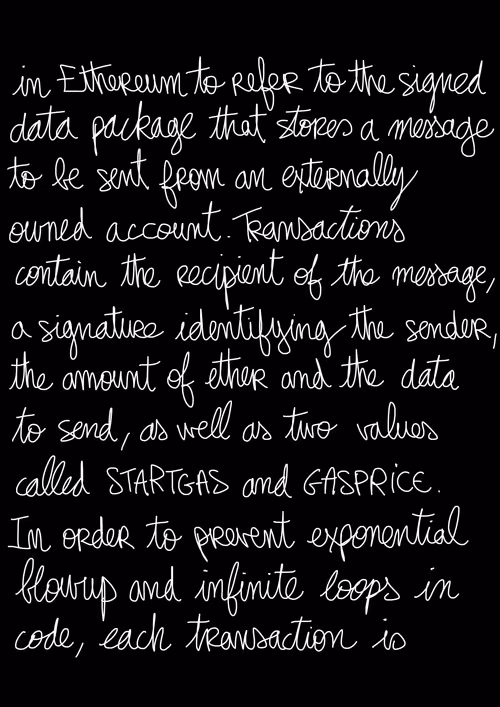 in Ethereum to refer to the signed
data package that stores a message
to be sent from an externally
owned account. Transactions
contain the recipient of the message,
a signature identifying the sender,
the amount of ether and the data
to send, as well as two values
called STARTGAS and GASPRICE.
In order to prevent exponential
blowup and infinite loops in
code, each transaction is